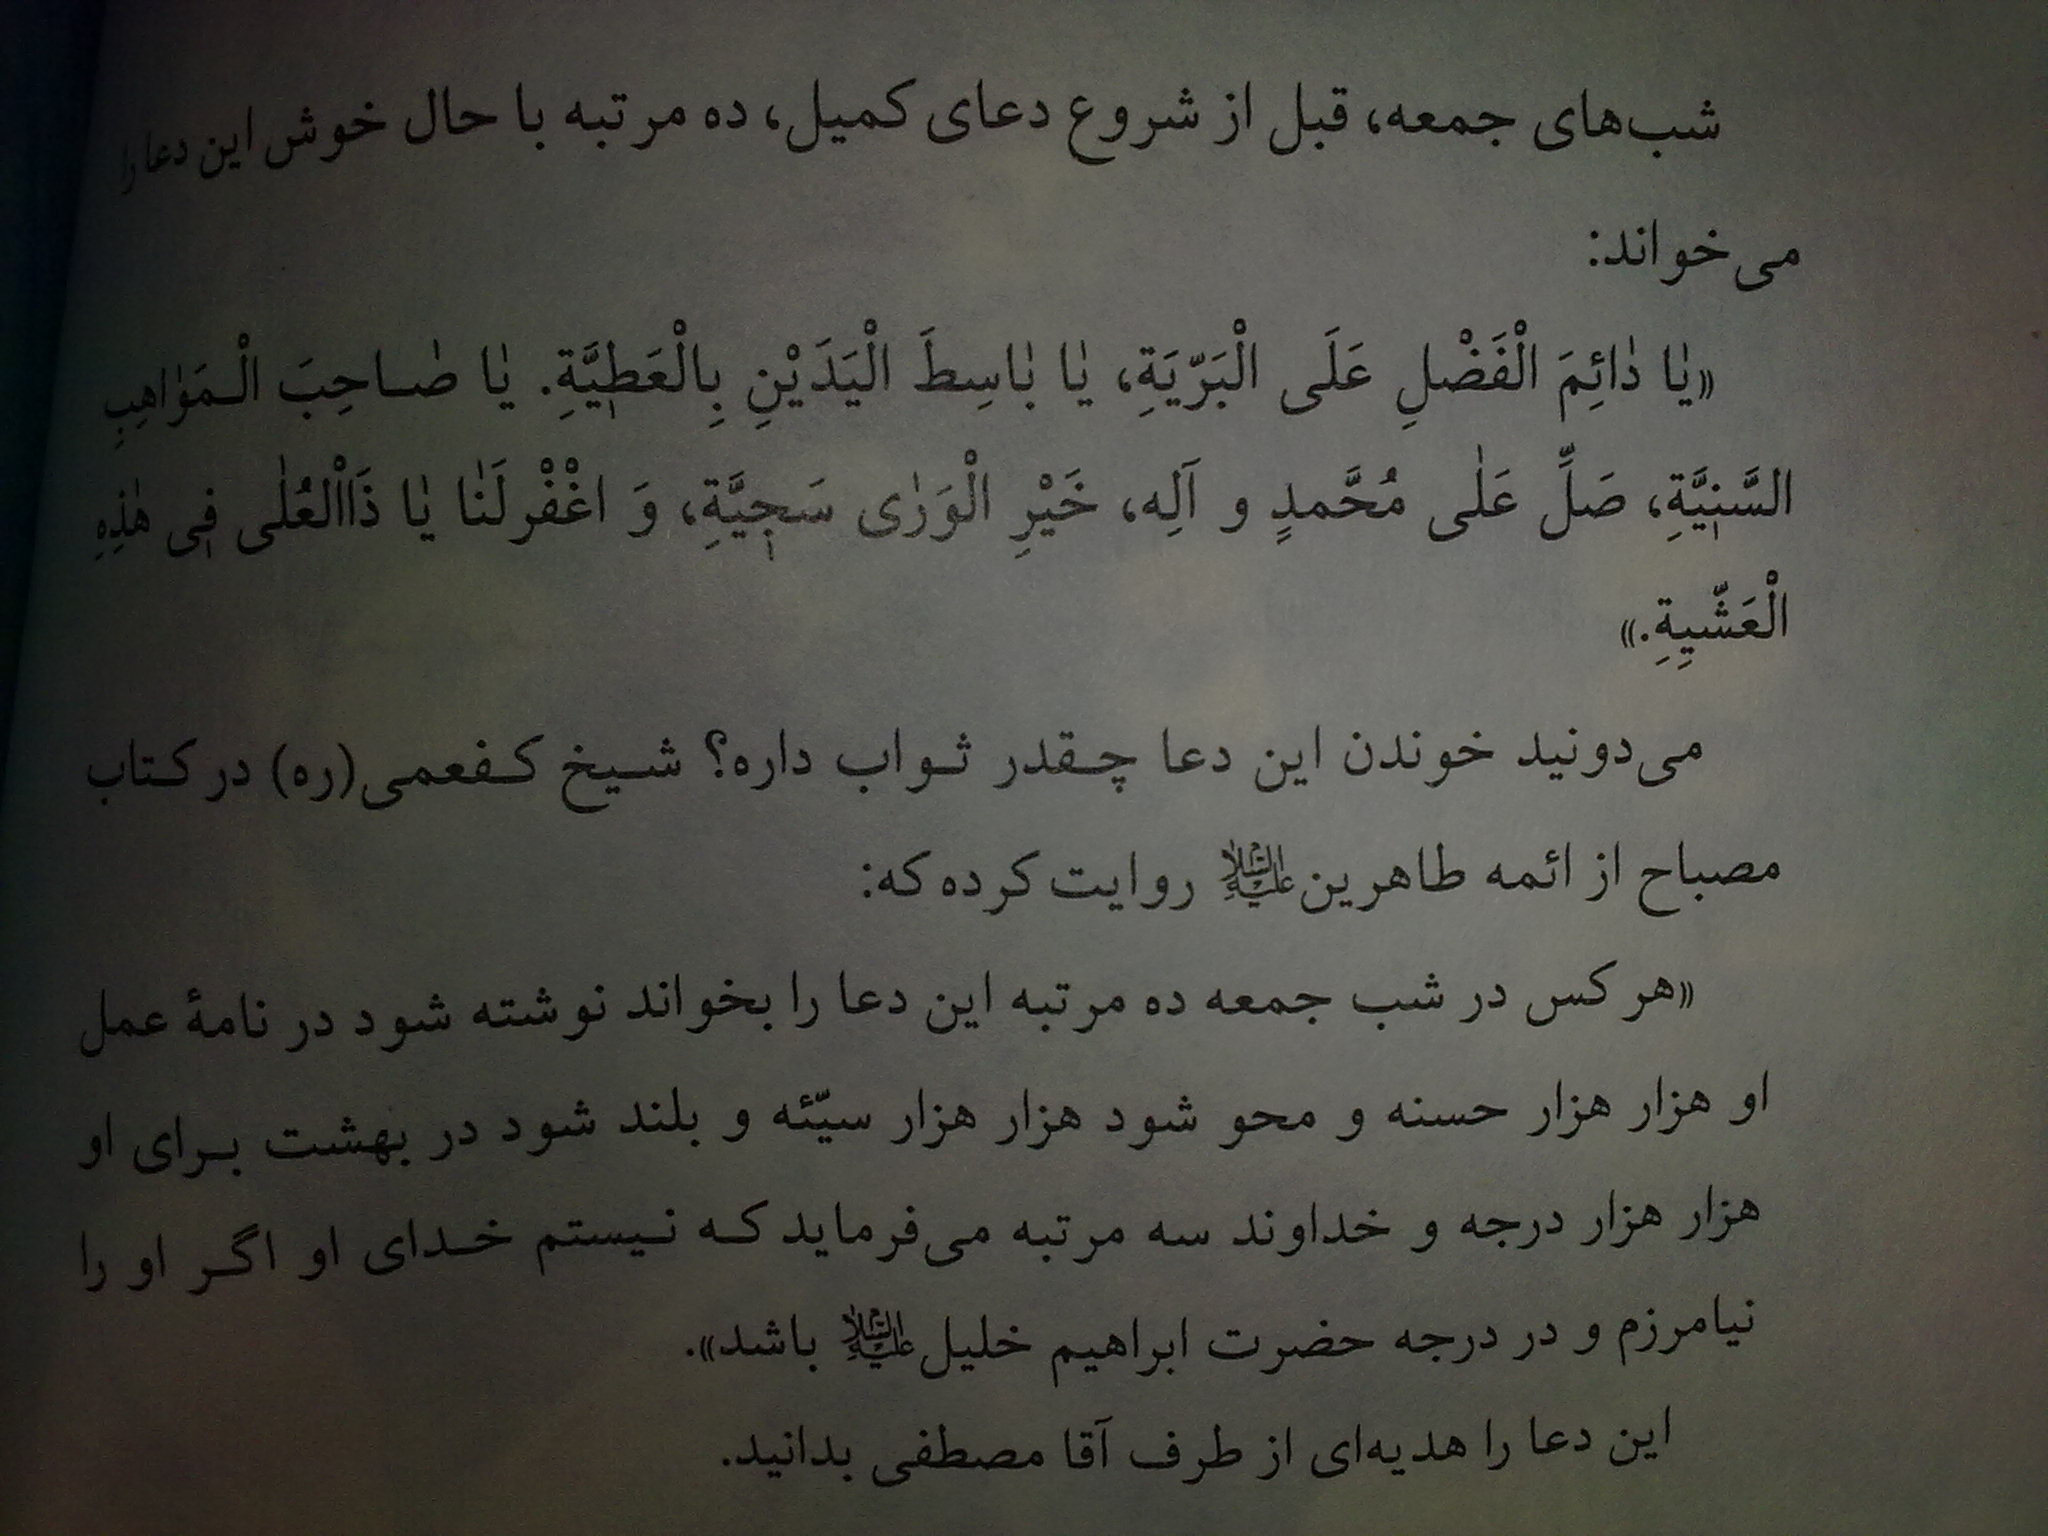 شب‌های جمعه، قبل از شروع دعای کمیل، ده مرتبه با حال خوش این دعا را
می‌خواند:
«یٰا دٰائِمَ الْفَضْلِ عَلَی الْبَرّیَةِ، یٰا بٰاسِطَ الْیَدَیْنِ بِالْعَطٖیَّةِ. یٰا صٰاحِبَ الْمَوٰاهِبِ
السَّنٖیَّةِ، صَلِّ عَلٰی مُحَّمدٍ و آلِه، خَیْرِ الْوَرٰی سَجٖیَّةِ، وَ اغْفْرلَنٰا یٰا ذَاالْعُلٰی فٖی هٰذِهِ
الْعَشّیِةِ.»
می‌دونید خوندن این دعا چقدر ثواب داره؟ شیخ کفعمی(ره) در کتاب
مصباح از ائمه طاهرین علیه‌السلام روایت کرده که:
«هر کس در شب جمعه ده مرتبه این دعا را بخواند نوشته شود در نامهٔ عمل
او هزار هزار حسنه و محو شود هزار هزار سیّئه و بلند شود در بهشت برای او
هزار هزار درجه و خداوند سه مرتبه می‌فرماید که نیستم خدای او اگر او را
نیامرزم و در درجه حضرت ابراهیم خلیل علیه‌السلام باشد».
این دعا را هدیه‌ای از طرف آقا مصطفی بدانید.